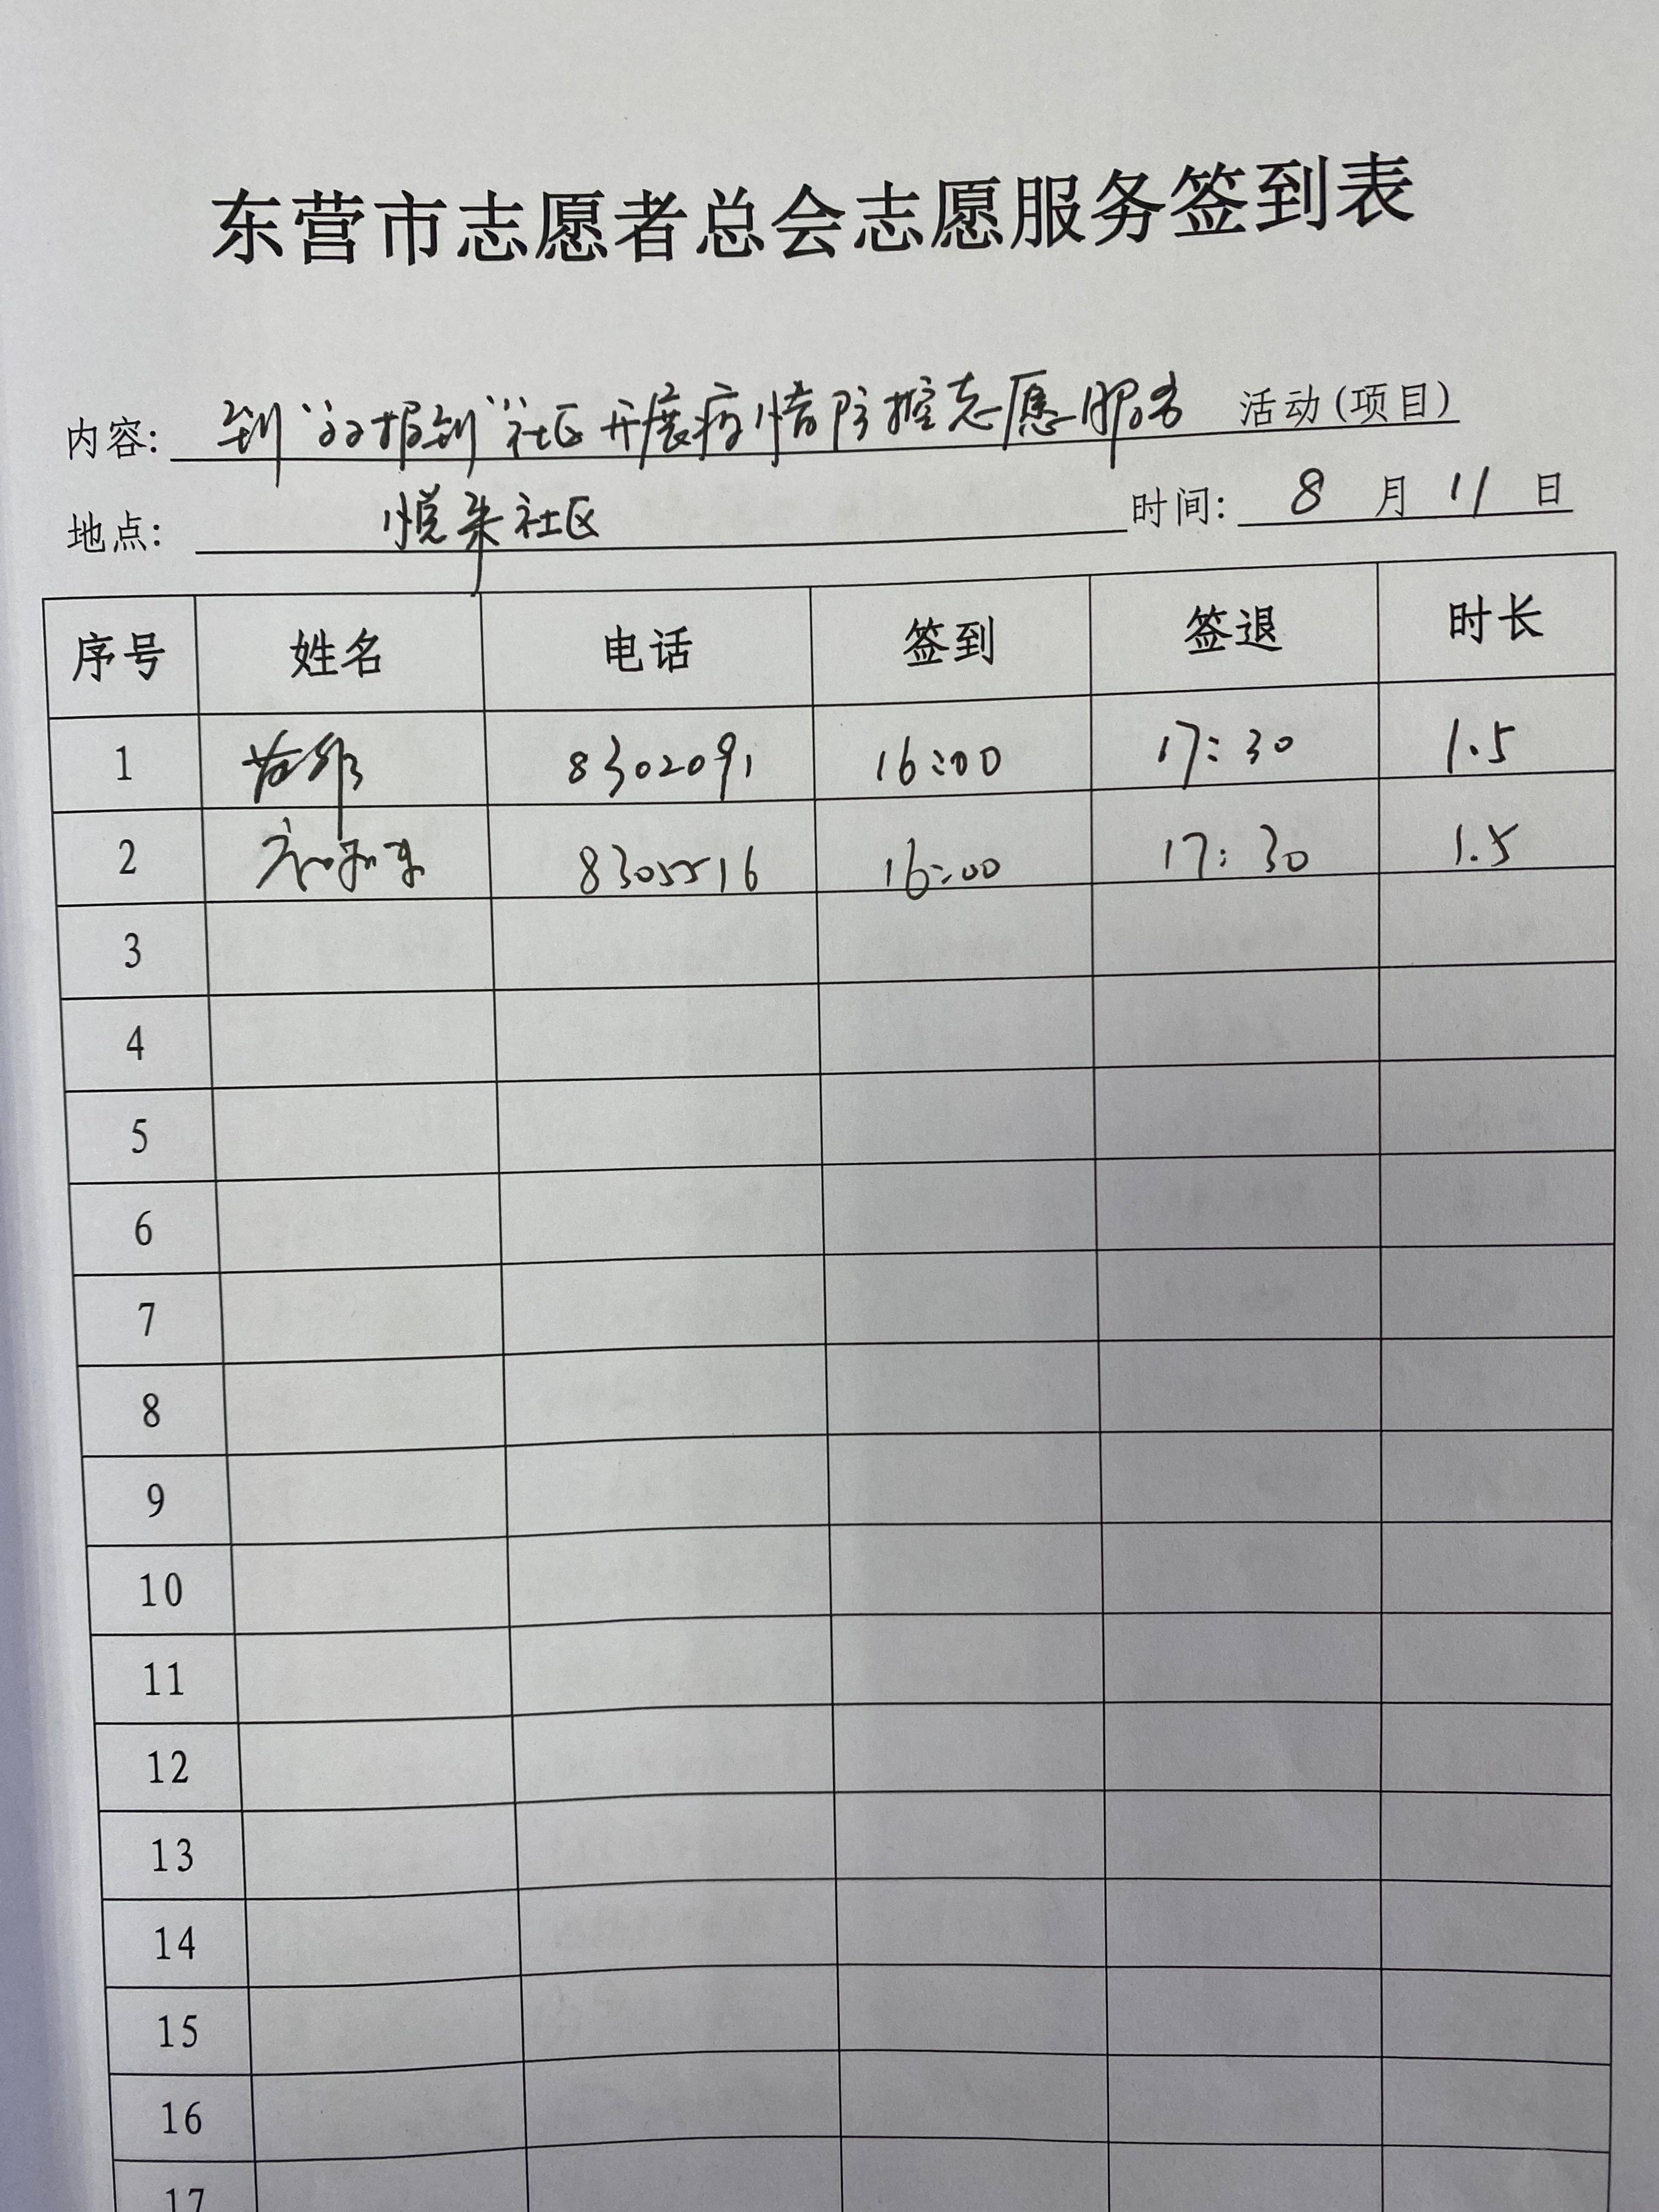 东营市志愿者总会志愿服务签到表
内容: 到“双报到”社区开展疫情防控志愿服务 活动(项目)
地点: 悦来社区 时间: 8 月 11 日
序号 姓名 电话 签到 签退 时长
1 8302091 16:00 17:30 1.5
2 8305516 16:00 17:30 1.5
3
4
5
6
7
8
9
10
11
12
13
14
15
16
17